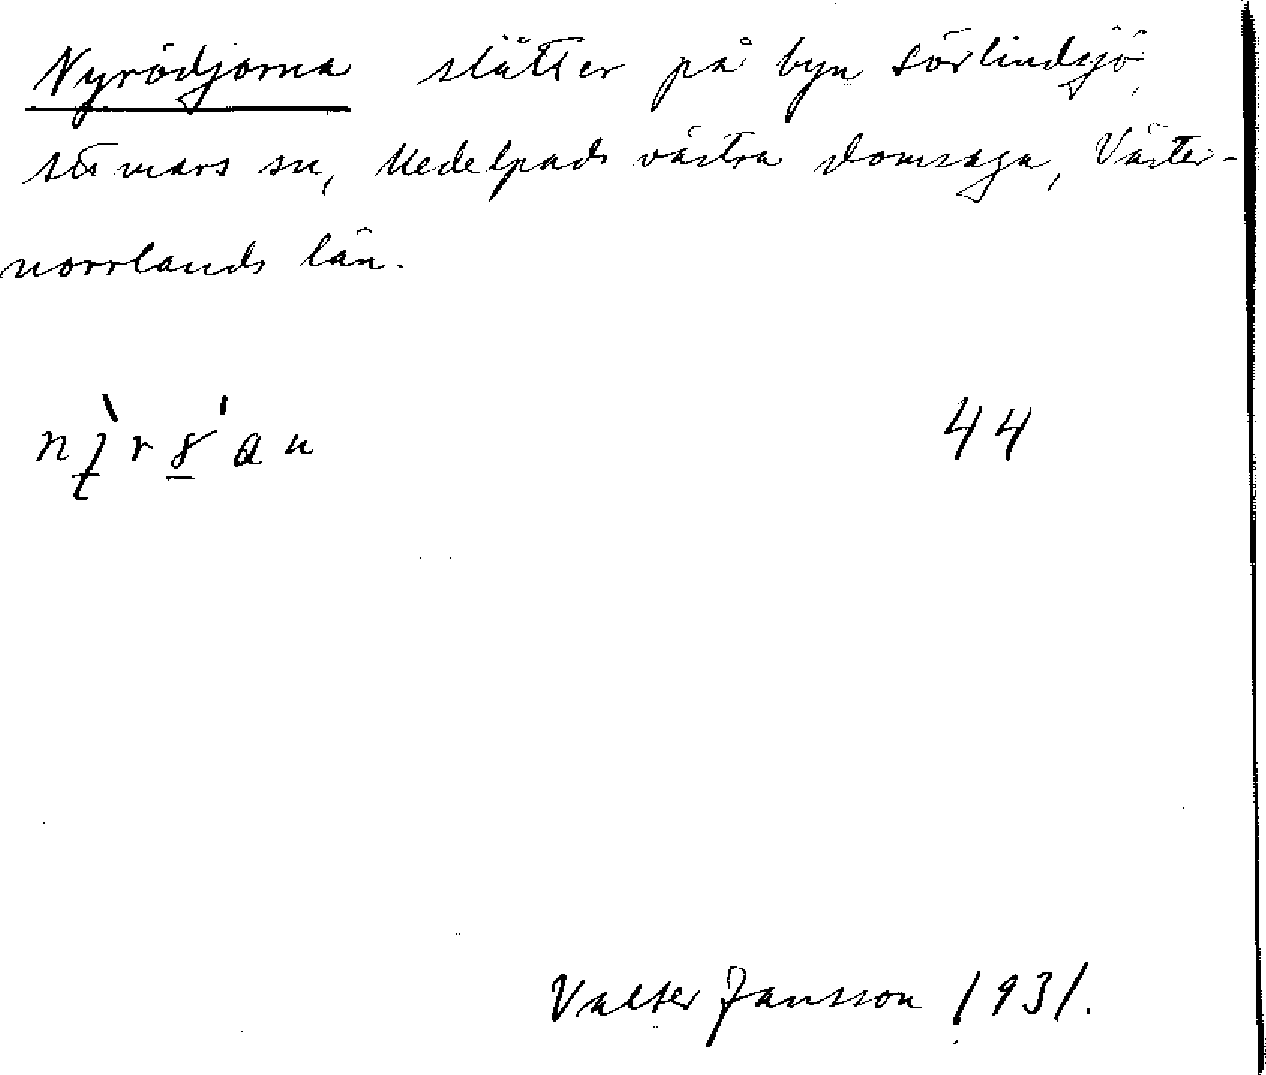 Nyrödjorna slåtter på byn Sörlindsjö,
Attmars sn, Medelpads västra domsaga, Väster-
norrlands län.
44
Valter Jansson 1931.